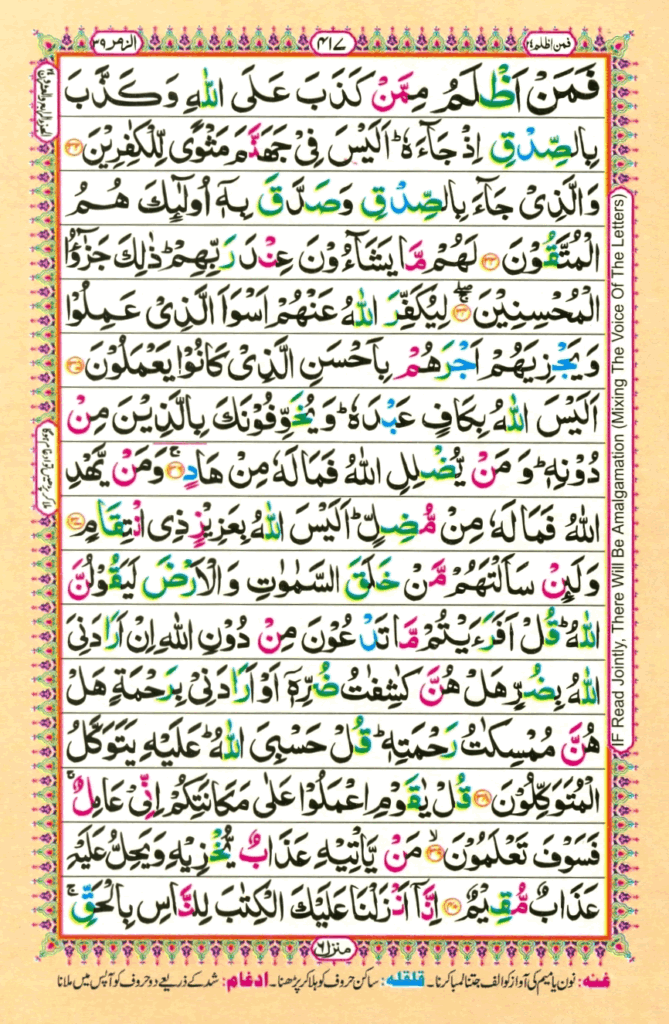 فمن اظلم ٢٤
٤١٧
الزمر ٣٩
فَمَنْ اَظْلَمُ مِمَّنْ كَذَبَ عَلَى اللّٰهِ وَكَذَّبَ
بِالصِّدْقِ اِذْ جَآءَهٗ ؕ اَلَيْسَ فِىْ جَهَنَّمَ مَثْوًى لِّلْكٰفِرِيْنَ ﴿٣٢﴾
وَالَّذِىْ جَآءَ بِالصِّدْقِ وَصَدَّقَ بِهٖۤ اُولٰٓئِكَ هُمُ
الْمُتَّقُوْنَ ﴿٣٣﴾ لَهُمْ مَّا يَشَآءُوْنَ عِنْدَ رَبِّهِمْ ؕ ذٰلِكَ جَزٰٓؤُا
الْمُحْسِنِيْنَ ﴿٣٤﴾ لِيُكَفِّرَ اللّٰهُ عَنْهُمْ اَسْوَاَ الَّذِىْ عَمِلُوْا
وَيَجْزِيَهُمْ اَجْرَهُمْ بِاَحْسَنِ الَّذِىْ كَانُوْا يَعْمَلُوْنَ ﴿٣٥﴾
اَلَيْسَ اللّٰهُ بِكَافٍ عَبْدَهٗ ؕ وَيُخَوِّفُوْنَكَ بِالَّذِيْنَ مِنْ
دُوْنِهٖ ؕ وَمَنْ يُّضْلِلِ اللّٰهُ فَمَا لَهٗ مِنْ هَادٍ ﴿٣٦﴾ۚ وَمَنْ يَّهْدِ
اللّٰهُ فَمَا لَهٗ مِنْ مُّضِلٍّ ؕ اَلَيْسَ اللّٰهُ بِعَزِيْزٍ ذِى انْتِقَامٍ ﴿٣٧﴾
وَلَئِنْ سَاَلْتَهُمْ مَّنْ خَلَقَ السَّمٰوٰتِ وَالْاَرْضَ لَيَقُوْلُنَّ
اللّٰهُ ؕ قُلْ اَفَرَءَيْتُمْ مَّا تَدْعُوْنَ مِنْ دُوْنِ اللّٰهِ اِنْ اَرَادَنِىَ
اللّٰهُ بِضُرٍّ هَلْ هُنَّ كٰشِفٰتُ ضُرِّهٖۤ اَوْ اَرَادَنِىْ بِرَحْمَةٍ هَلْ
هُنَّ مُمْسِكٰتُ رَحْمَتِهٖ ؕ قُلْ حَسْبِىَ اللّٰهُ ؕ عَلَيْهِ يَتَوَكَّلُ
الْمُتَوَكِّلُوْنَ ﴿٣٨﴾ قُلْ يٰقَوْمِ اعْمَلُوْا عَلٰى مَكَانَتِكُمْ اِنِّىْ عَامِلٌ ۚ
فَسَوْفَ تَعْلَمُوْنَ ﴿٣٩﴾ۙ مَنْ يَّاْتِيْهِ عَذَابٌ يُّخْزِيْهِ وَيَحِلُّ عَلَيْهِ
عَذَابٌ مُّقِيْمٌ ﴿٤٠﴾ اِنَّاۤ اَنْزَلْنَا عَلَيْكَ الْكِتٰبَ لِلنَّاسِ بِالْحَقِّ ۚ
IF Read Jointly, There Will Be Amalgamation (Mixing The Voice Of The Letters)
منزل ٦
غنه: نون یا میم کی آواز کو الف جتنا لمبا کرنا۔ قلقله: ساکن حروف کو ہلا کر پڑھنا۔ ادغام: شد کے ذریعے دو حروف کو آپس میں ملانا